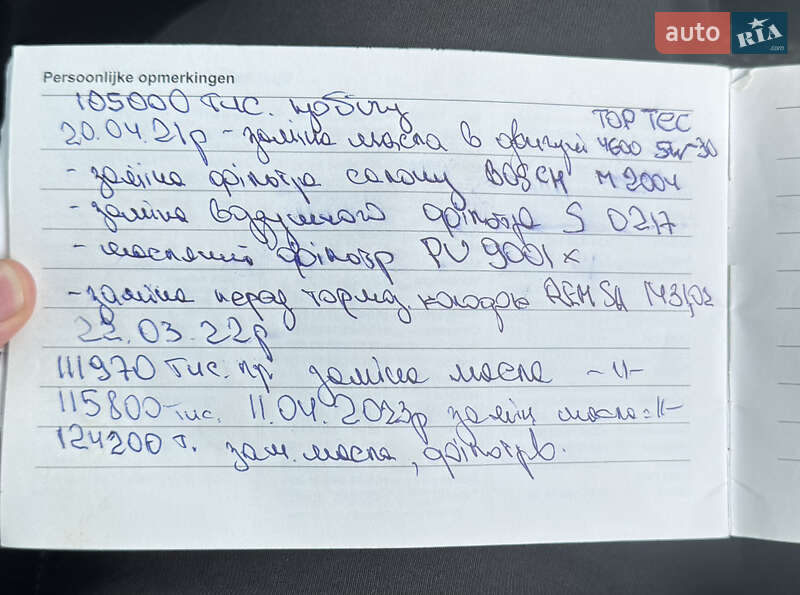 auto RIA .com
Persoonlijke opmerkingen
105000 тис. пробігу
20.04.21р - заміна масла в двигуні TOP TEC 4600 5w-30
- заміна фільтра салону BOSCH M 2004
- заміна воздушного фільтра S 0217
- масляний фільтр PU 9001 x
- заміна перед тормоз колодок REMSA 1431,02
22.03.22р
111970 тис. пр заміна масла -॥-
115800 тис. 11.04.2023р заміна масла -॥-
124200 т. зам. масла, фільтрів.